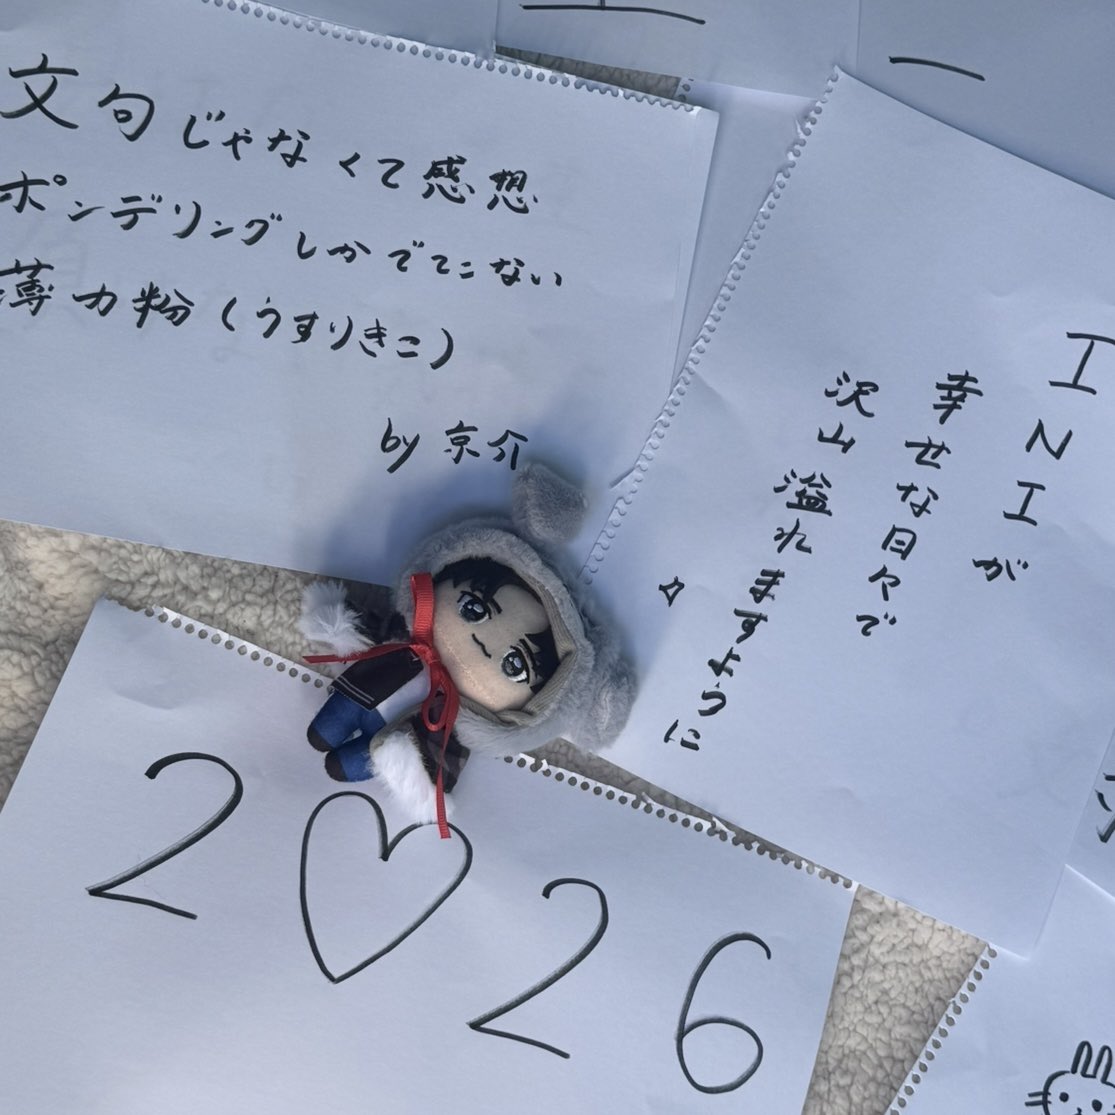 文句じゃなくて感想
ポンデリングしかでてこない
薄力粉(うすりきこ)
by 京介
INIが
幸せな日々で
沢山溢れますように
2♡26